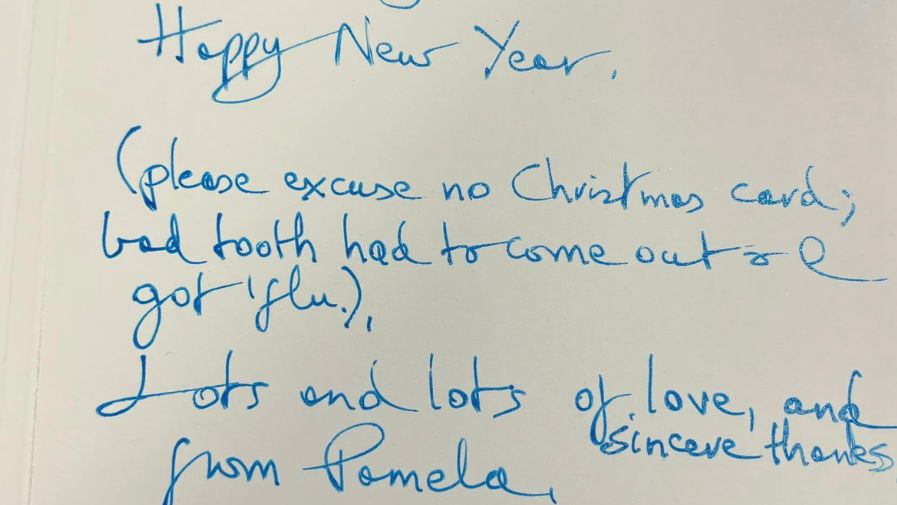 Happy New Year.
(please excuse no Christmas card;
bad tooth had to come out & I
got 'flu.),
Lots and lots of love, and
sincere thanks
from Pamela,